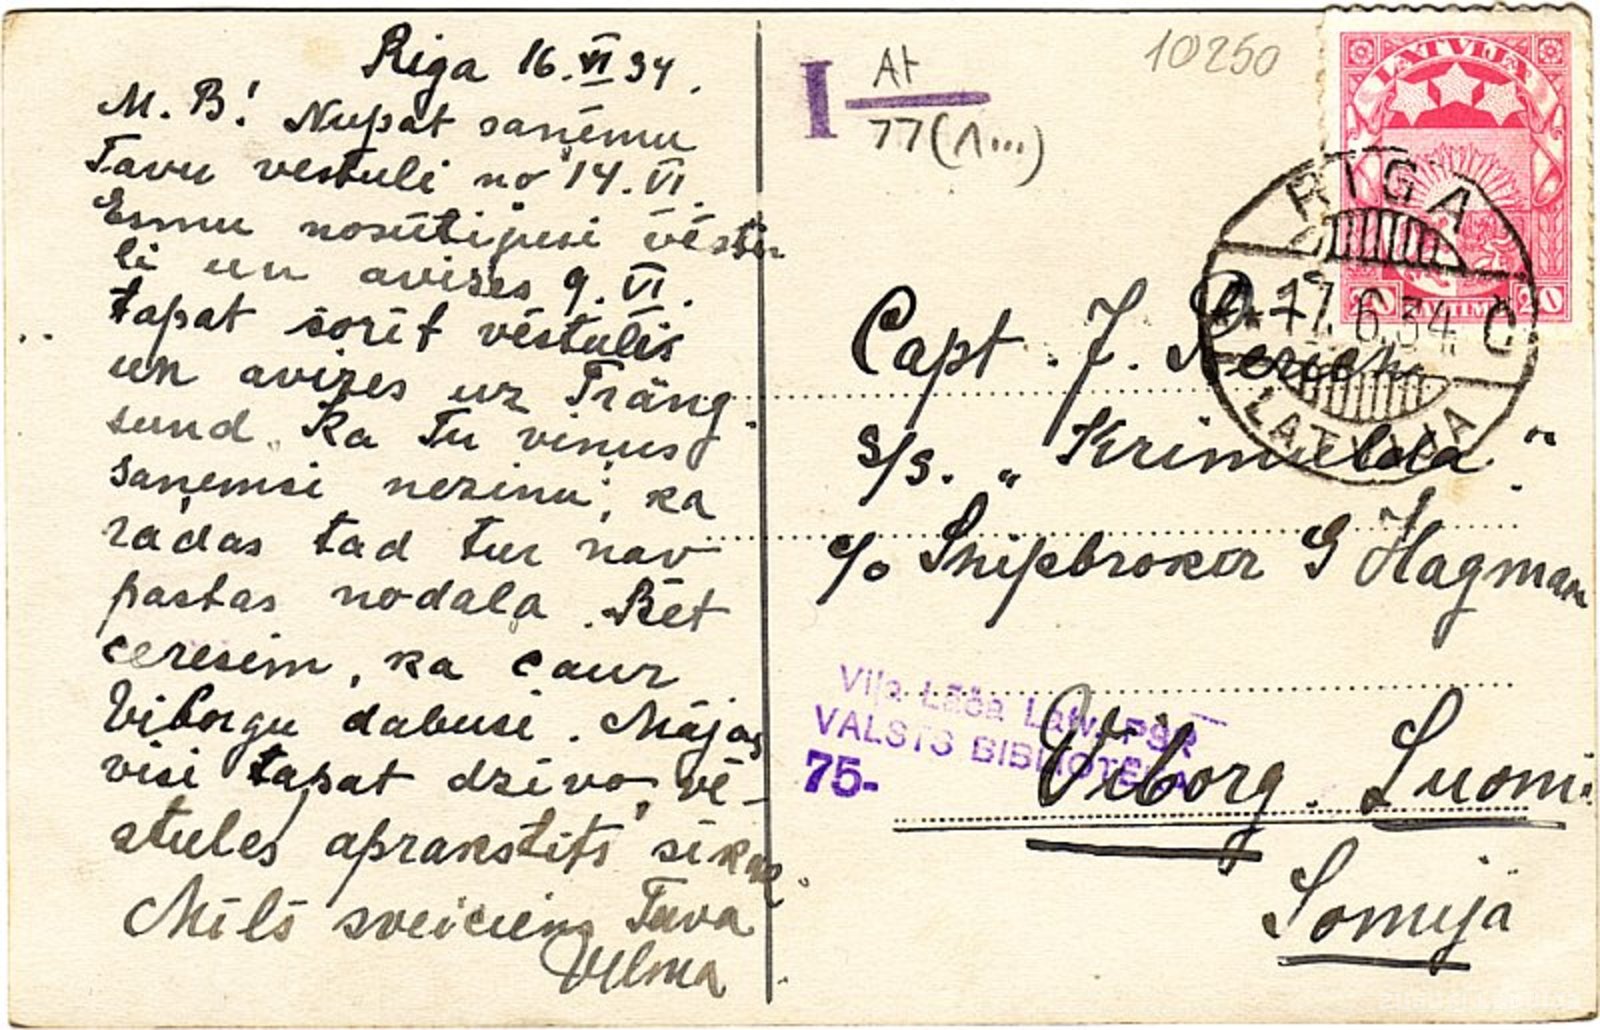 Riga 16. VI 34.
M. B! Nupat saņēmu
Tavu vēstuli no 14. VI
Esmu nosūtijusi vēstu
li un avizes 9. VI.
tapat šorit vēstulis
un avizes uz Träng
sund. Ka Tu viņus
saņemsi nezinu, ka
rādas tad tur nav
pastas nodala. Bet
ceresim, ka caur
Viborgu dabusi. Mājas
visi tapat dzivo, vē-
stules aprakstits sikak.
Mīļš sveiciens Tava
Vilma
I At
77(1...)
10250
LATVIJA
20 SANTIMU 20
RIGA
17.6.34. C
LATVIJA
Capt. J.
S/s. „Krimulda"
c/o Shipbroker G Hagman
Viborg. Suomi
Somija
Viļa Lāča Latv. PSR
VALSTS BIBLIOTEKA
75-